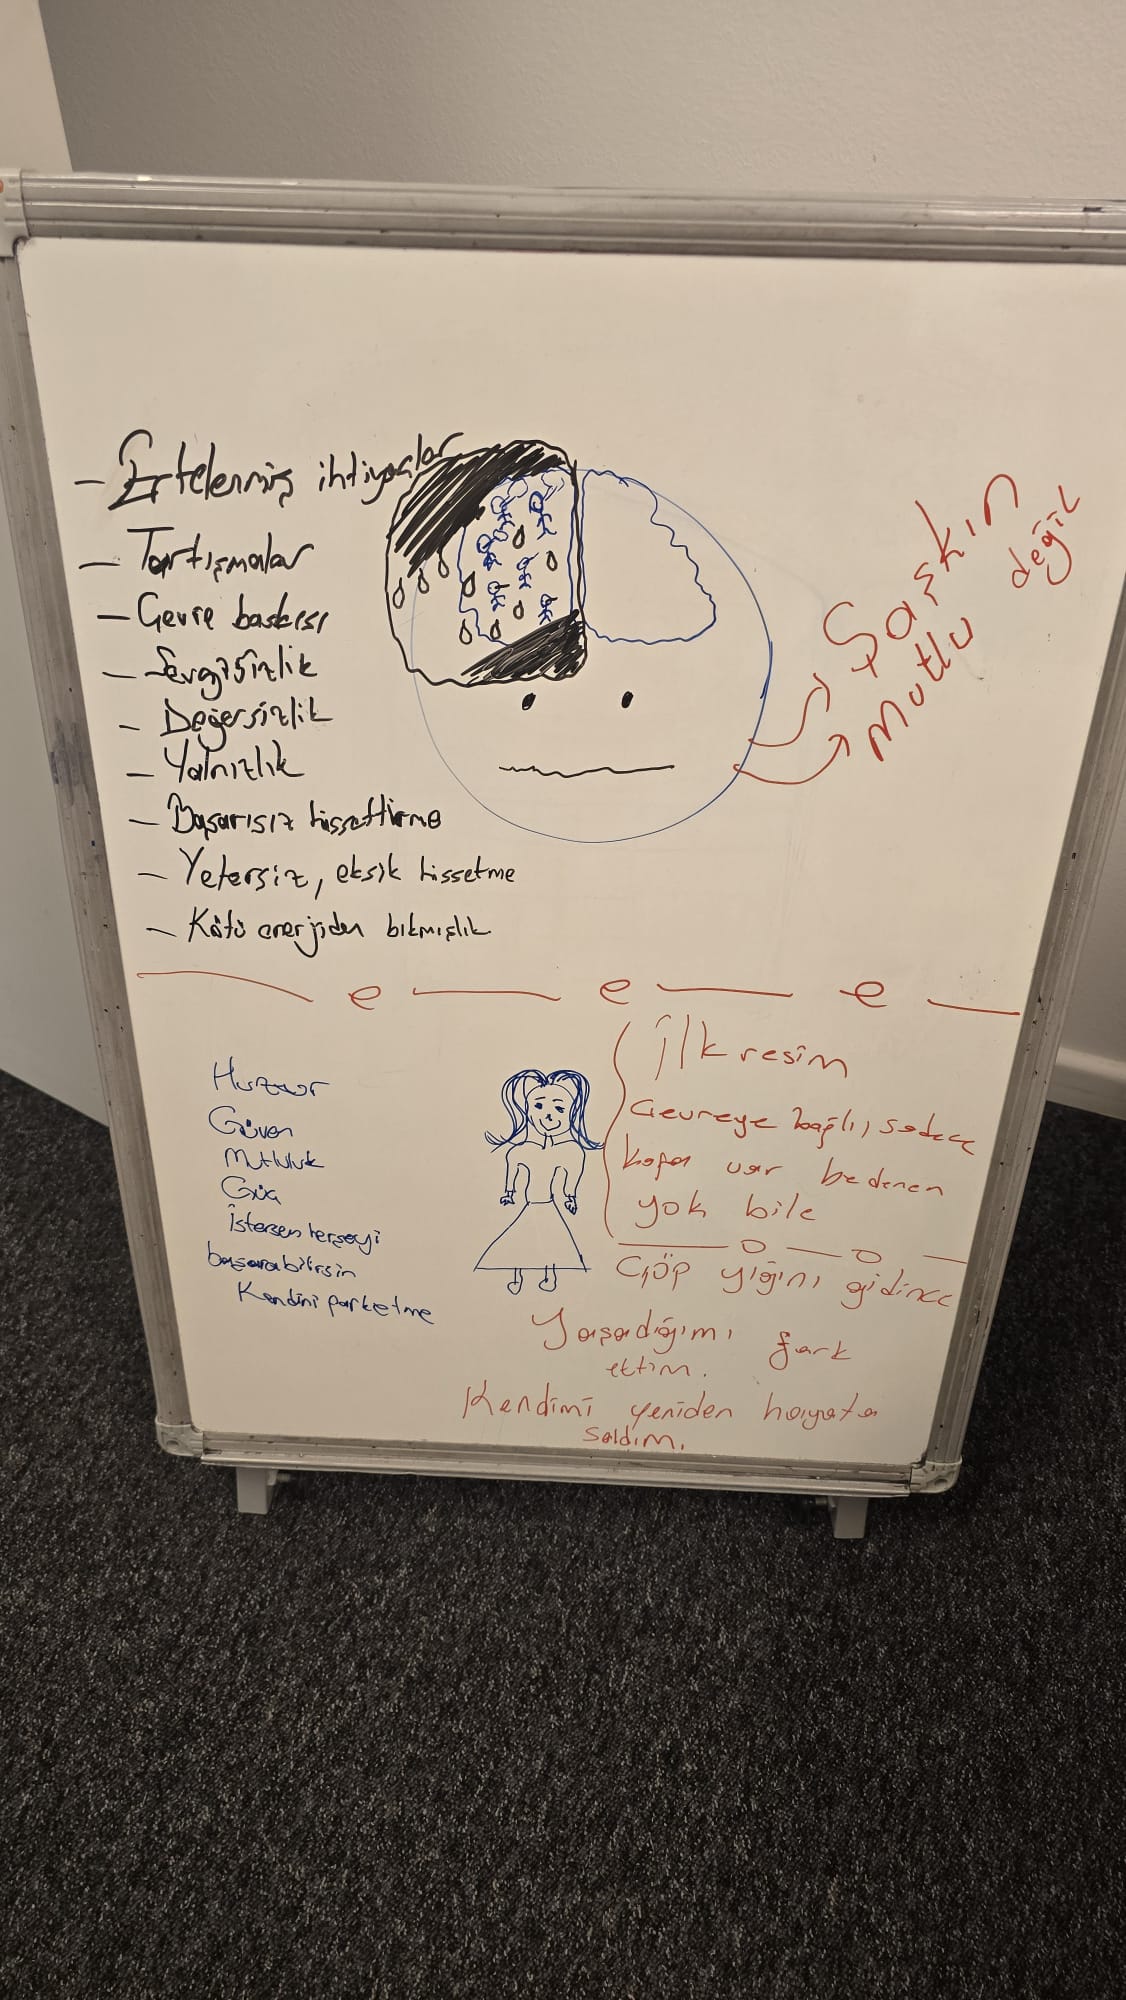 - Ertelenmiş ihtiyaçlar
- Tartışmalar
- Çevre baskısı
- Sevgisizlik
- Değersizlik
- Yalnızlık
- Başarısız hissettirme
- Yetersiz, eksik hissetme
- Kötü enerjiden bıkmışlık
Şaşkın
Mutlu değil
Huzur
Güven
Mutluluk
Güç
İstersen herşeyi
başarabilirsin
Kendini parketme
İlk resim
Çevreye bağlı, sadece
kafa var bedenen
yok bile
Çöp yığını gidince
Yaşadığımı fark
ettim.
Kendimi yeniden hayata
saldım.